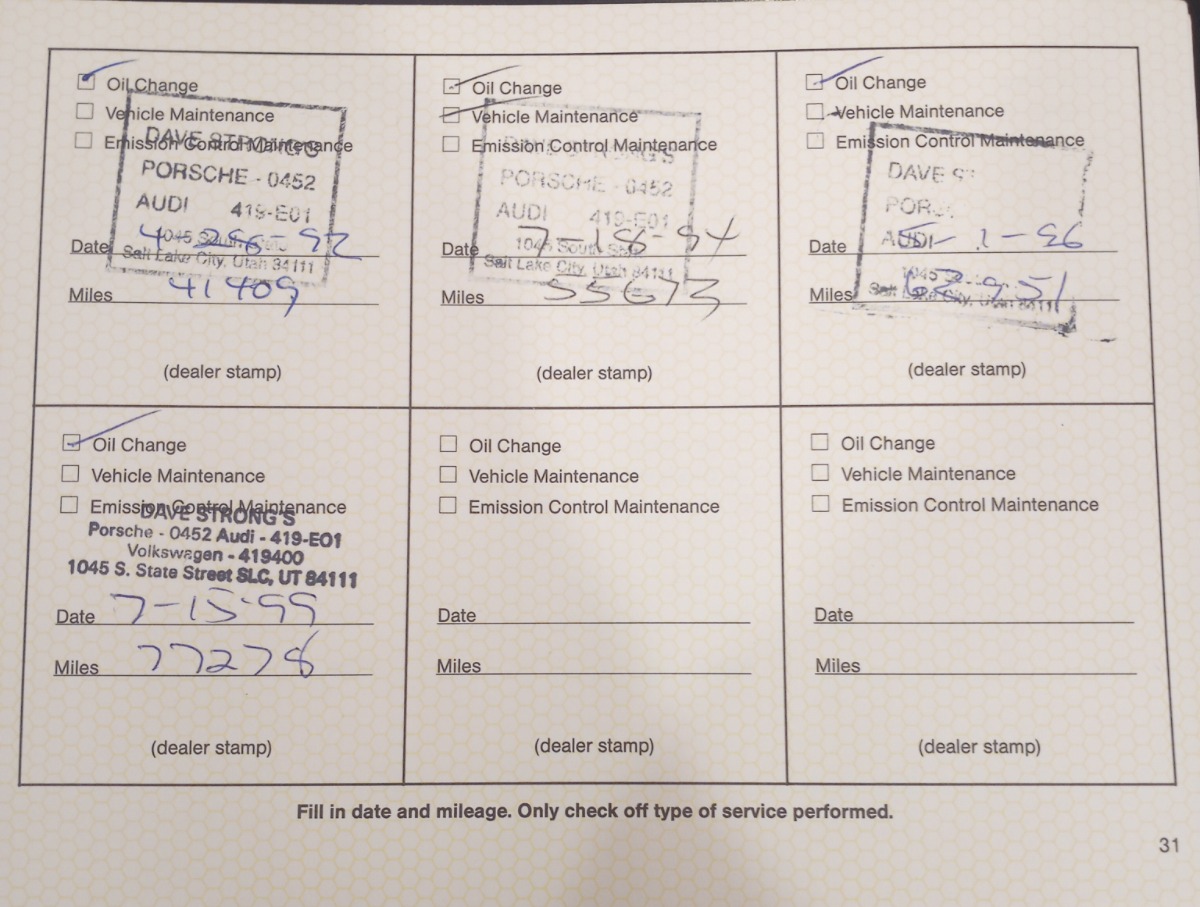 Oil Change
Vehicle Maintenance
Emission Control Maintenance
DAVE STRONG'S
PORSCHE - 0452
AUDI 419-E01
1045 South
Salt Lake City, Utah 84111
Date
Miles 41409
(dealer stamp)
Oil Change
Vehicle Maintenance
Emission Control Maintenance
DAVE STRONG'S
PORSCHE - 0452
AUDI 419-E01
1045 South
Salt Lake City, Utah 84111
Date 7-18-94
Miles 55673
(dealer stamp)
Oil Change
Vehicle Maintenance
Emission Control Maintenance
DAVE
AUDI
1045
Date
Miles
(dealer stamp)
Oil Change
Vehicle Maintenance
Emission Control Maintenance
DAVE STRONG'S
Porsche - 0452 Audi - 419-EO1
Volkswagen - 419400
1045 S. State Street SLC, UT 84111
Date 7-15-99
Miles 77278
(dealer stamp)
Oil Change
Vehicle Maintenance
Emission Control Maintenance
Date
Miles
(dealer stamp)
Oil Change
Vehicle Maintenance
Emission Control Maintenance
Date
Miles
(dealer stamp)
Fill in date and mileage. Only check off type of service performed.
31